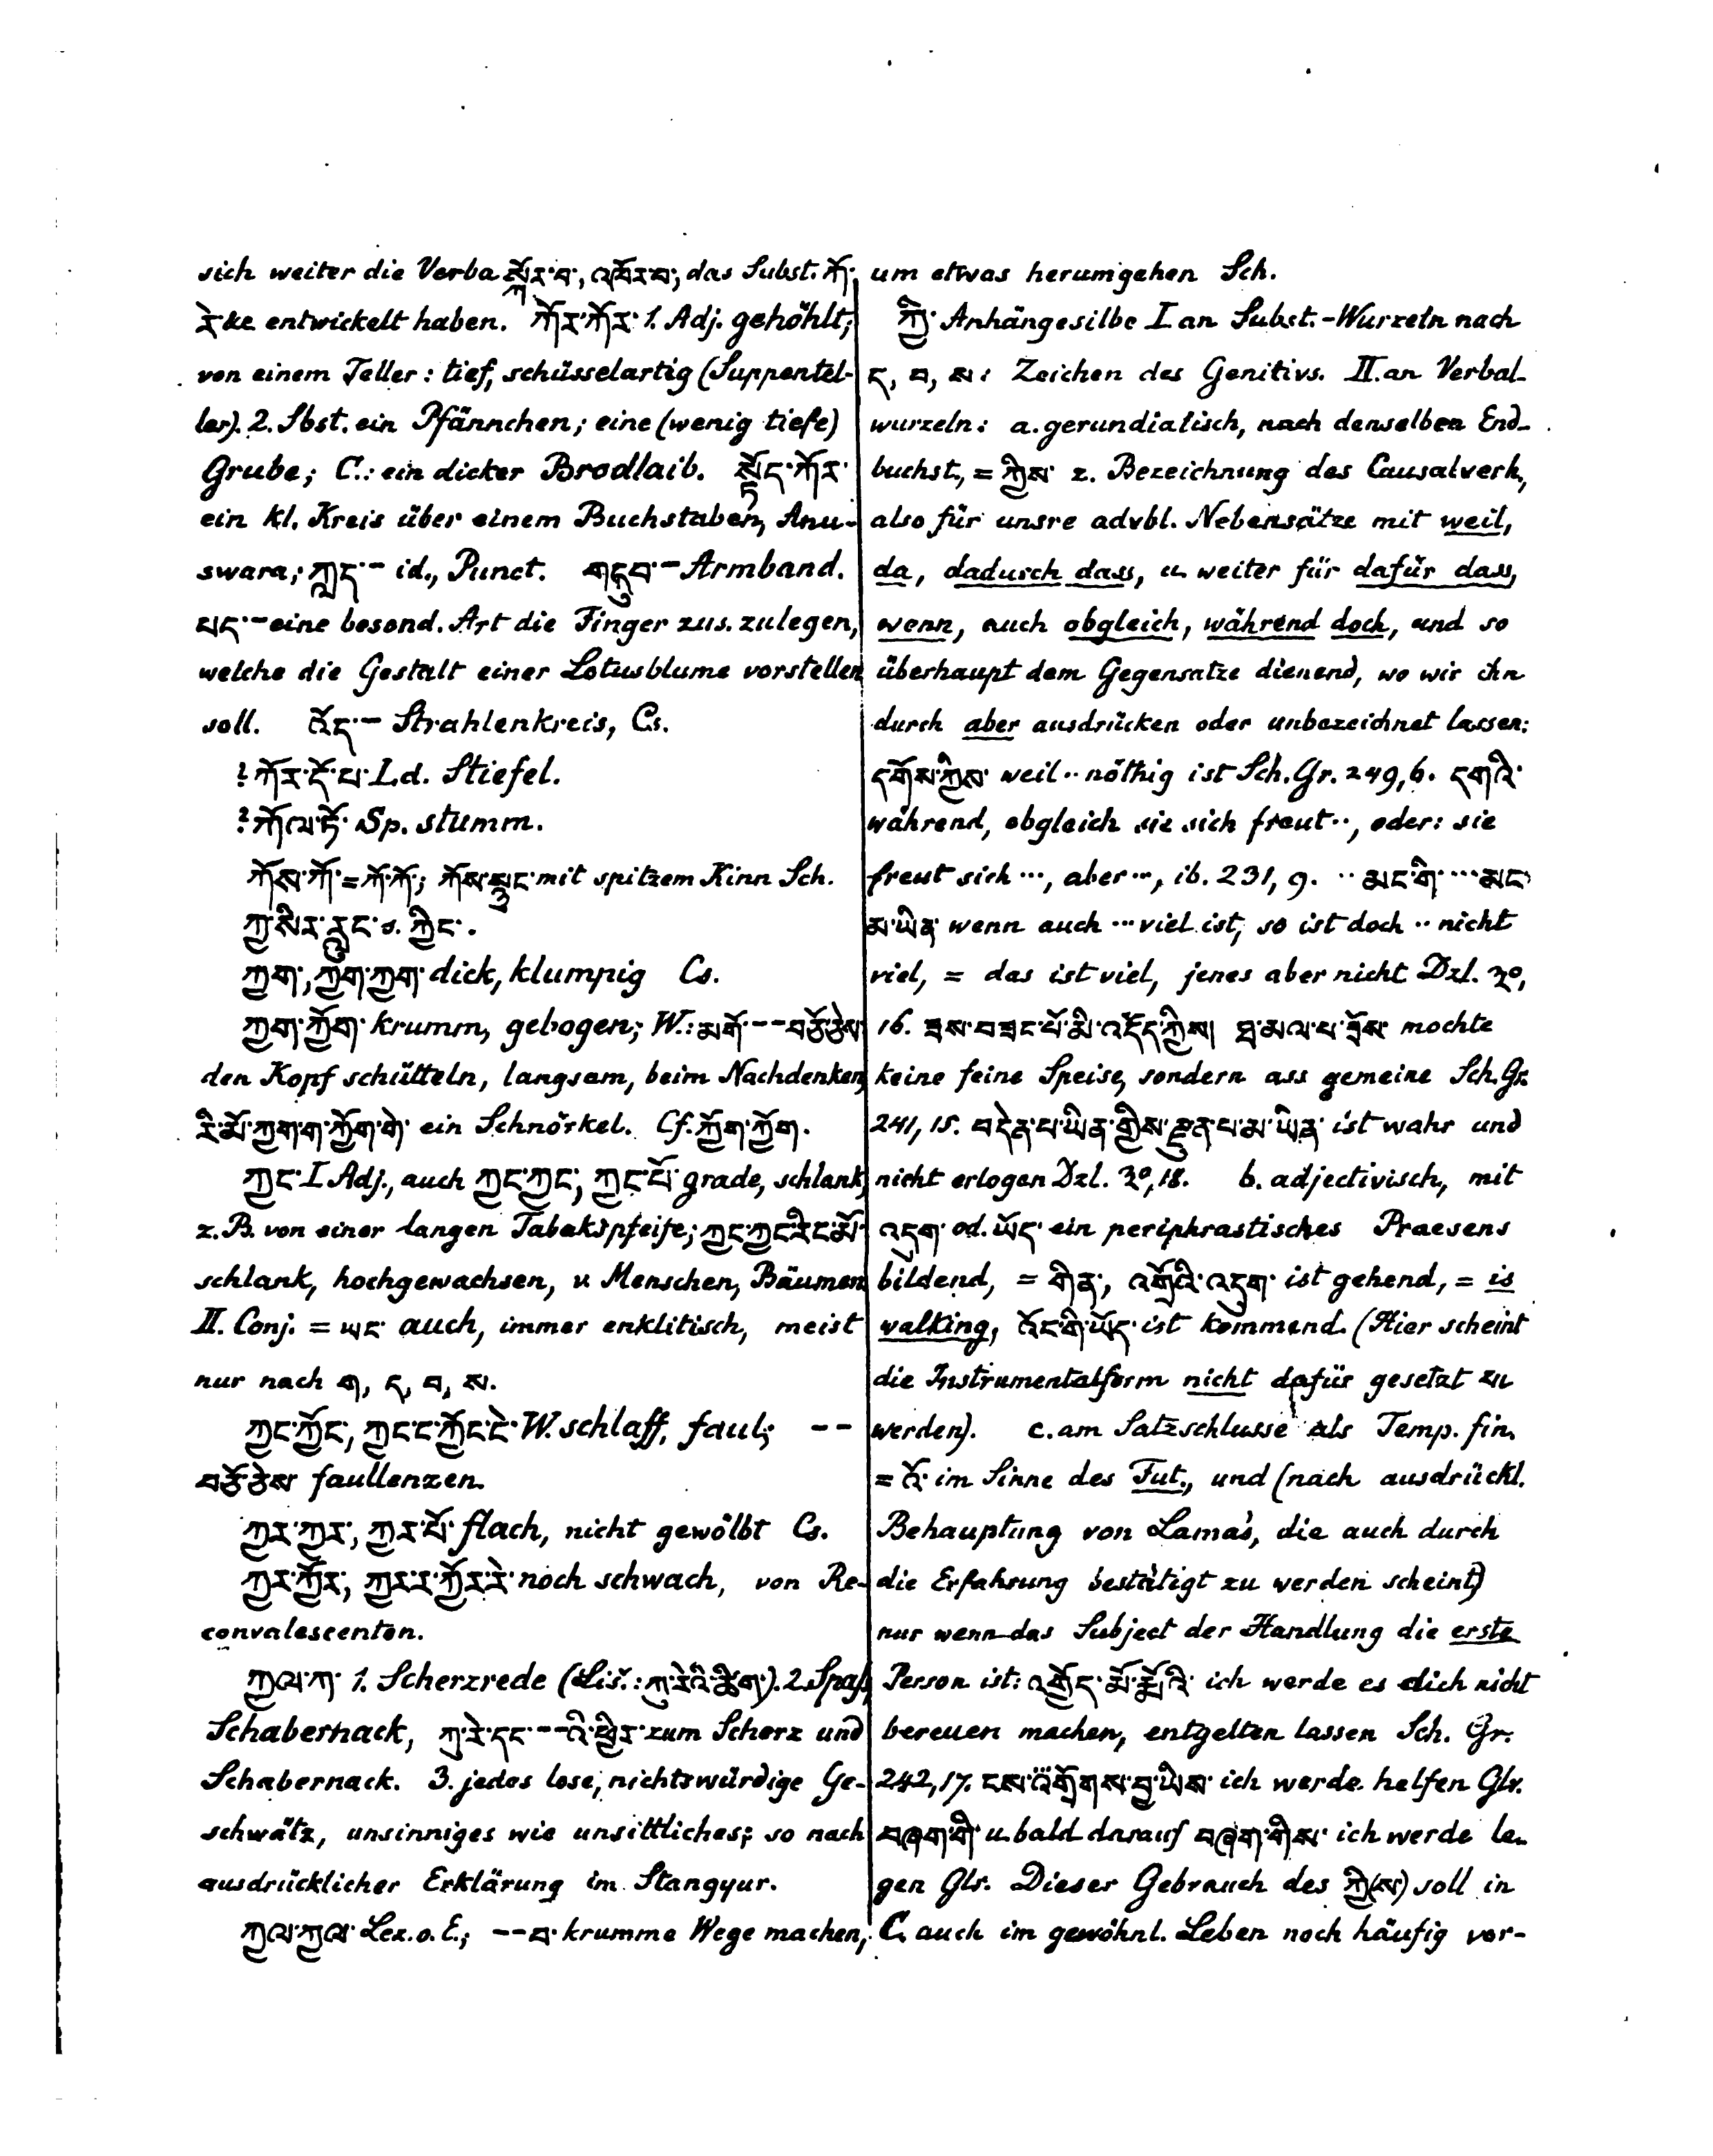 sich weiter die Verba སྐོར་བ་, འཁོར་བ་, das Subst. ཀོ་
རེ་ke entwickelt haben. ཀོར་ཀོར་ 1. Adj. gehöhlt;
von einem Teller: tief, schüsselartig (Suppentel-
ler). 2. Sbst. ein Pfännchen; eine (wenig tiefe)
Grube; C.: ein dicker Brodlaib. སྟོད་ཀོར་
ein kl. Kreis über einem Buchstaben, Anu-
swara; ཀླད་– id., Punct. གདུབ་– Armband.
པད་– eine besond. Art die Finger zus. zulegen,
welche die Gestalt einer Lotusblume vorstellen
soll. འོད་– Strahlenkreis, Cs.
?ཀོར་དོ་པ་ Ld. Stiefel.
?ཀོལ་ཏོ་ Sp. stumm.
ཀོས་ཀོ་ = ཀོ་ཀོ་; ཀོས་ mit spitzem Kinn Sch.
ཀྱ་སིར་རླུང་ s. ཀྱིང་.
ཀྱག་, ཀྱག་ཀྱག་ dick, klumpig Cs.
ཀྱག་ཀྱོག་ krumm, gebogen; W.: མགོ་ – – བཅོ་ཅེས་
den Kopf schütteln, langsam, beim Nachdenken,
རི་མོ་ཀྱག་ག་ཀྱོག་གེ་ ein Schnörkel. Cf. ཀྱོག་ཀྱོག.
ཀྱང་ I Adj., auch ཀྱང་ཀྱང་, ཀྱང་པོ་ grade, schlank,
z. B. von einer langen Tabakspfeife; ཀྱང་ཀྱང་རིང་མོ་
schlank, hochgewachsen, v. Menschen, Bäumen
II. Conj. = ཡང་ auch, immer enklitisch, meist
nur nach ག, ད, བ, ས.
ཀྱང་ཀྱོང་, ཀྱང་ང་ཀྱོང་ངེ་ W. schlaff, faul; – –
བཅོ་ཅེས་ faullenzen.
ཀྱར་ཀྱར་, ཀྱར་པོ་ flach, nicht gewölbt Cs.
ཀྱར་ཀྱོར་, ཀྱར་ར་ཀྱོར་རེ་ noch schwach, von Re-
convalescenten.
ཀྱལ་ཀ་ 1. Scherzrede (Liš.: ཀུ་རེའི་ཚིག་). 2. Spaß,
Schabernack, ཀུ་རེ་དང་ – –འི་ཕྱིར་ zum Scherz und
Schabernack. 3. jedes lose, nichtswürdige Ge-
schwätz, unsinniges wie unsittliches; so nach
ausdrücklicher Erklärung im Stangyur.
ཀྱལ་ཀྱལ་ Lex. o. E.; – –བ་ krumme Wege machen,
um etwas herumgehen Sch.
ཀྱི་ Anhängesilbe I an Subst.-Wurzeln nach
ད, བ, ས: Zeichen des Genitivs. II. an Verbal-
wurzeln: a. gerundialisch, nach denselben End-
buchst., = ཀྱིས་ z. Bezeichnung des Causalverh.,
also für unsre advbl. Nebensätze mit weil,
da, dadurch dass, u. weiter für dafür dass,
wenn, auch obgleich, während doch, und so
überhaupt dem Gegensatze dienend, wo wir ihn
durch aber ausdrücken oder unbezeichnet lassen:
དགོས་ཀྱིས་ weil ·· nöthig ist Sch. Gr. 249, 6. དགའི་
während, obgleich sie sich freut ··, oder: sie
freut sich ···, aber ···, ib. 231, 9. ·· མང་གི་ ··· མང་
མ་ཡིན་ wenn auch ··· viel ist, so ist doch ·· nicht
viel, = das ist viel, jenes aber nicht Dzl. ༢༠,
16. ཟས་བཟང་པོ་མི་འདོད་ཀྱིས། ཐ་མལ་པ་ཟོས་ mochte
keine feine Speise, sondern ass gemeine Sch. Gr.
241, 15. བདེན་པ་ཡིན་གྱིས་རྫུན་པ་མ་ཡིན་ ist wahr und
nicht erlogen Dzl. ༢༠, 18. b. adjectivisch, mit
འདུག་ od. ཡོད་ ein periphrastisches Praesens
bildend, = གིན་, འགྲོའི་འདུག་ ist gehend, = is
walking, འོང་གི་ཡོད་ ist kommend. (Hier scheint
die Instrumentalform nicht dafür gesetzt zu
werden). c. am Satzschlusse als Temp. fin.
= འོ་ im Sinne des Fut., und (nach ausdrückl.
Behauptung von Lama's, die auch durch
die Erfahrung bestätigt zu werden scheint)
nur wenn das Subject der Handlung die erste
Person ist: འགྱོད་མོ་རྨོའི་ ich werde es dich nicht
bereuen machen, entgelten lassen Sch. Gr.
242, 17. ངས་ ··· གྲོགས་བྱ་ཡིས་ ich werde helfen Glr.
བཞག་གི་ u. bald darauf བཞག་གིས་ ich werde le-
gen Glr. Dieser Gebrauch des ཀྱི(ས) soll in
C. auch im gewöhnl. Leben noch häufig vor-